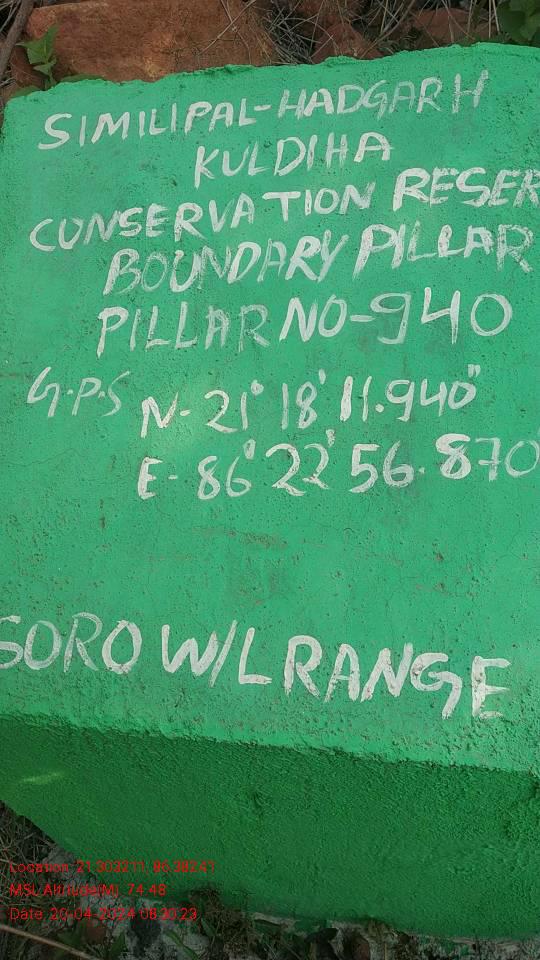 SIMILIPAL-HADGARH
KULDIHA
CONSERVATION RESER
BOUNDARY PILLAR
PILLAR NO-940
G.P.S
N- 21° 18' 11.940"
E- 86° 22' 56.870
SORO W/L RANGE
Location: 21.303211, 86.38241
MSL Altitude(M): 74.48
Date: 20-04-2024 08:30:23